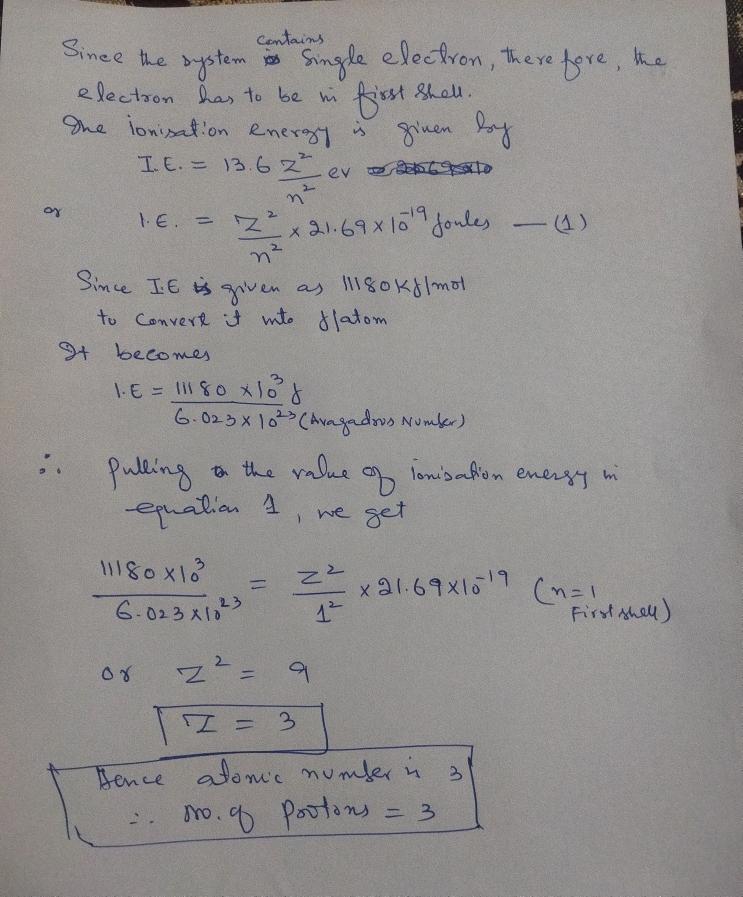 Since the system contains Single electron, therefore, the
electron has to be in first Shell.
The ionisation energy is given by
I.E. = 13.6 Z²/n² ev
or I.E. = Z²/n² x 21.69 x 10⁻¹⁹ Joules — (1)
Since I.E is given as 11180 KJ/mol
to Convert it into J/atom
It becomes
I.E = 11180 x 10³ J / 6.023 x 10²³ (Avagadros Number)
∴ Putting the value of ionisation energy in
equation 1, we get
11180 x 10³ / 6.023 x 10²³ = Z²/1² x 21.69 x 10⁻¹⁹ (n=1 First shell)
or Z² = 9
Z = 3
Hence atomic number is 3
∴ No. of Protons = 3